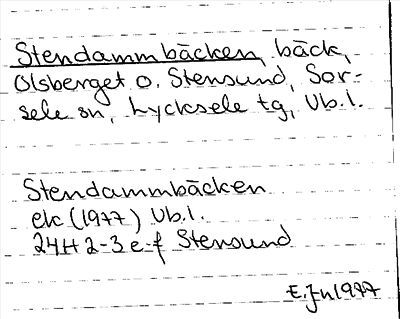 Stendammbäcken, bäck,
Olsberget o. Stensund, Sor-
sele sn, Lycksele tg, Vb.l.
Stendammbäcken
ek (1977) Vb.l.
24H 2-3 e-f Stensund
E.Jn 1977